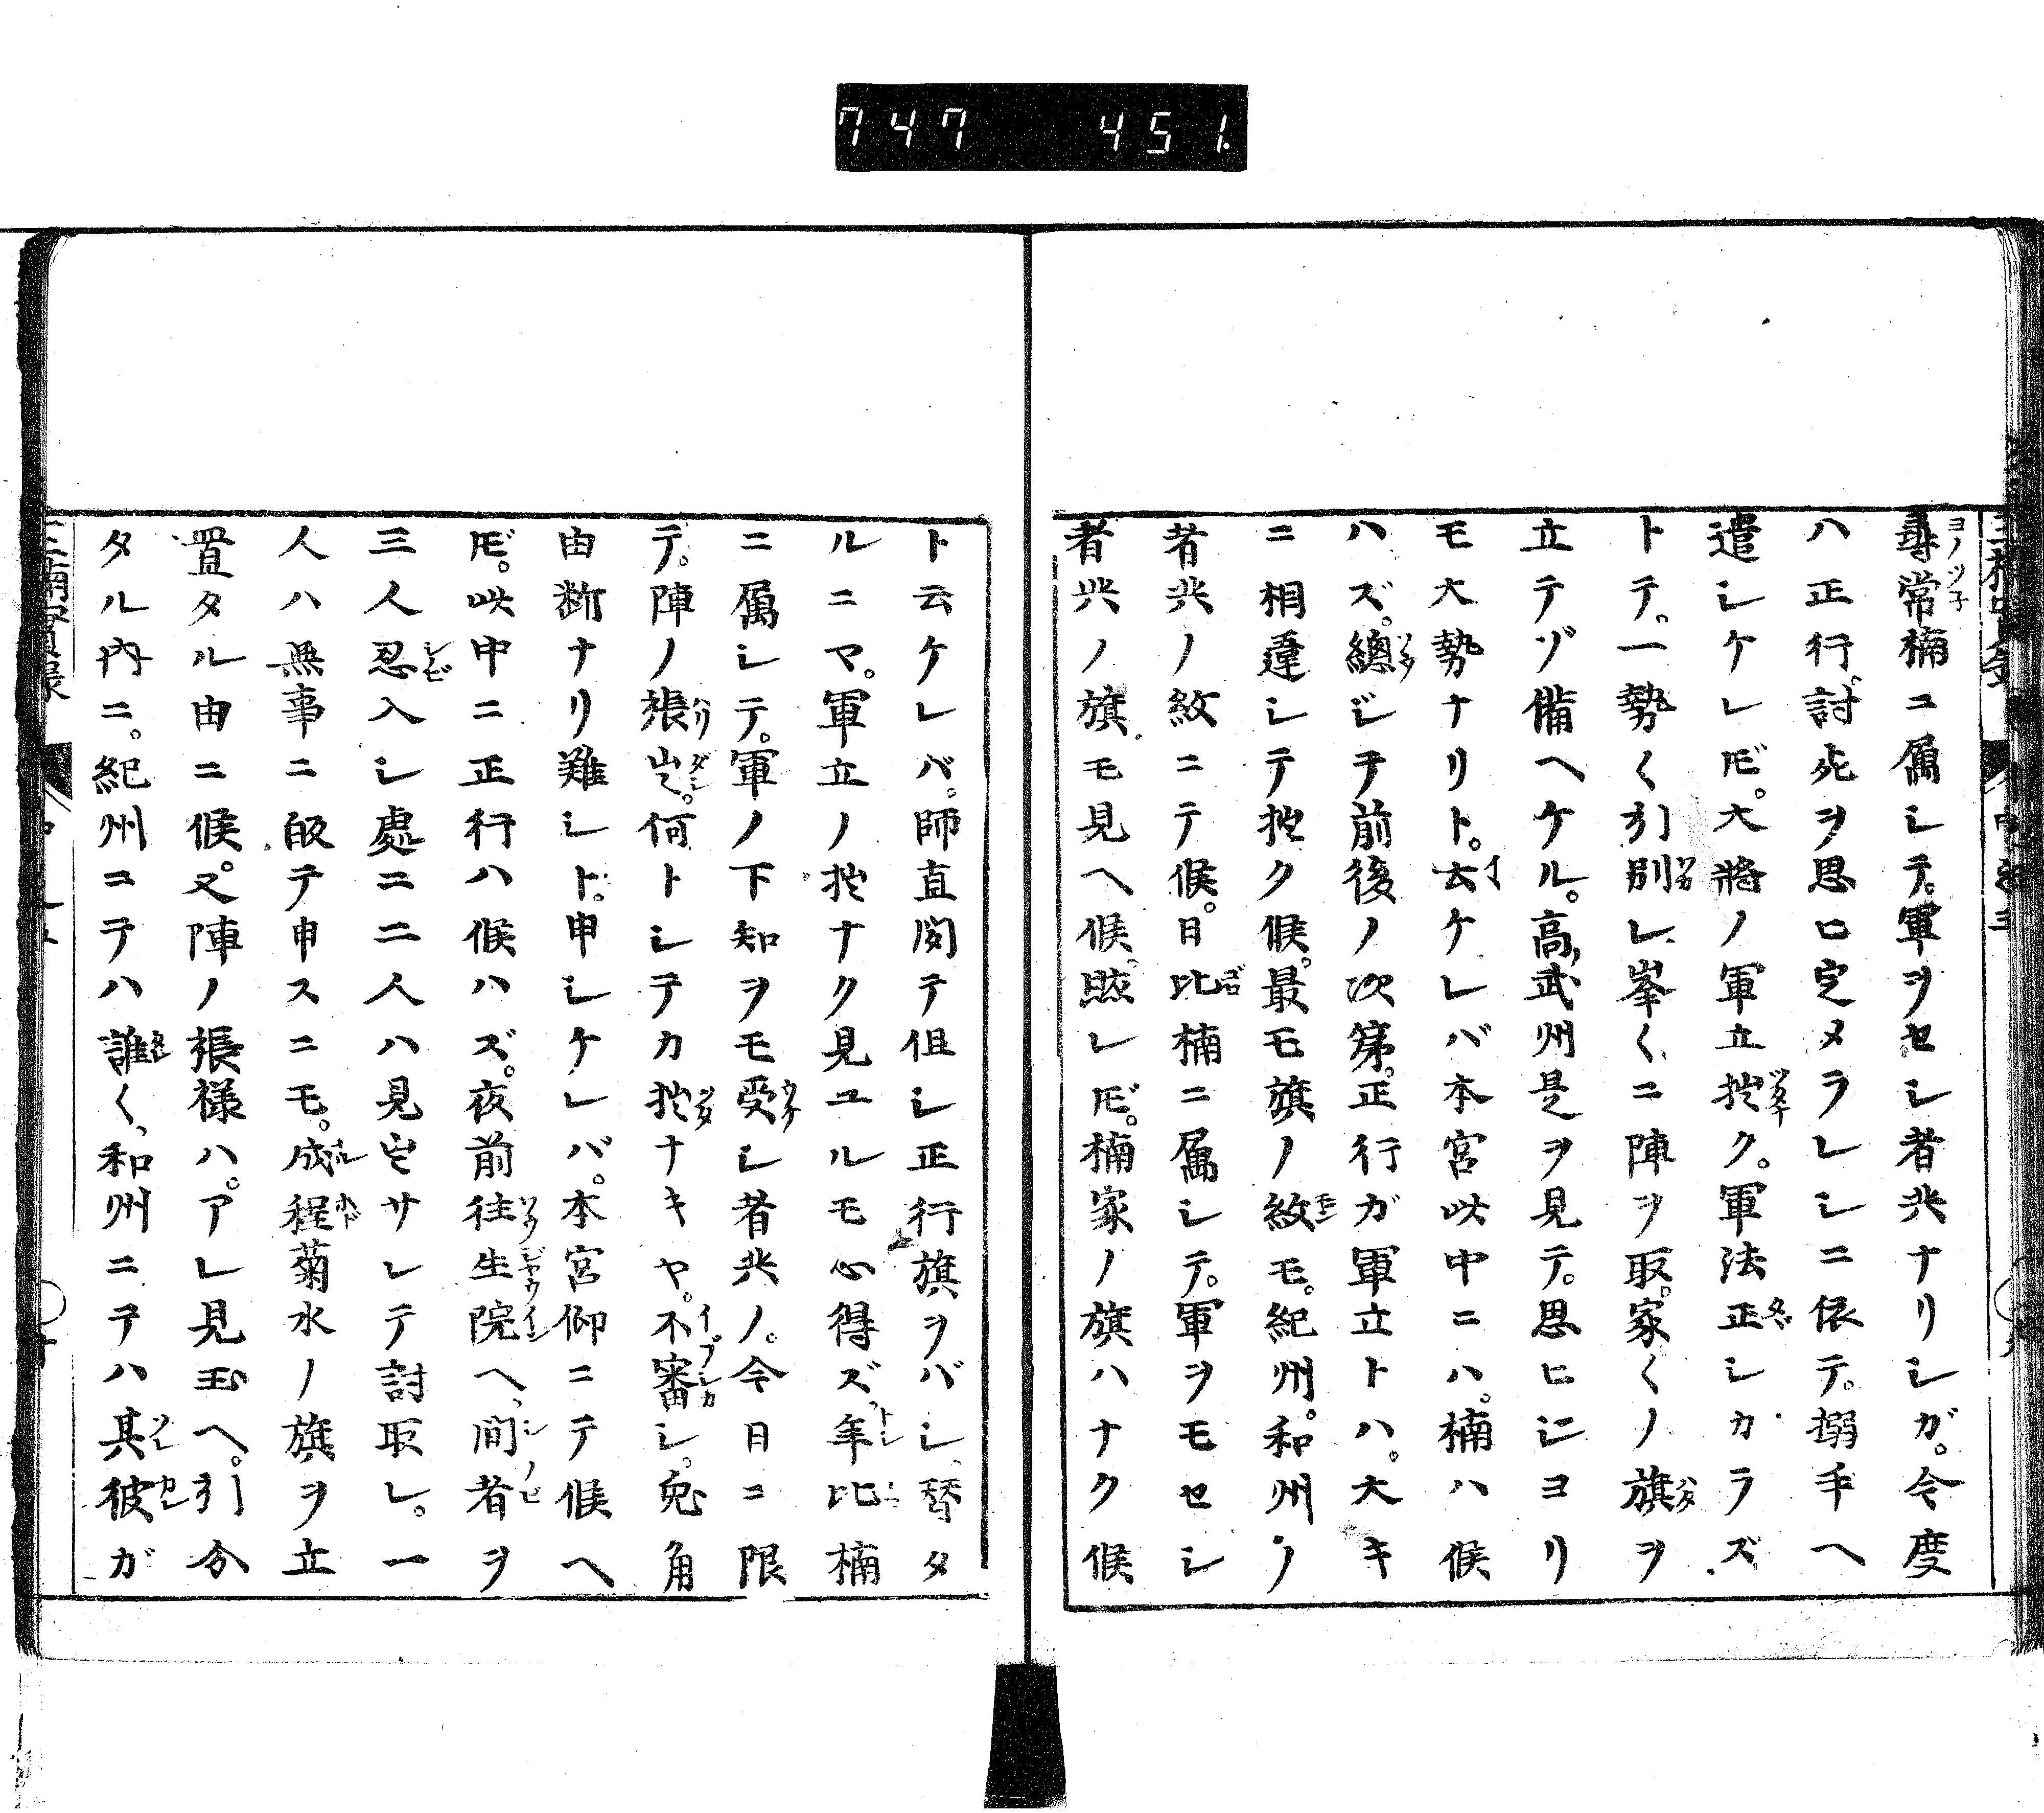 747 451.
尋常楠ニ属シテ。軍ヲセシ者共ナリシガ。今度
ハ正行。討死ヲ思ヒ定メラレシニ依テ。搦手ヘ
遣シケレ𪜈。大將ノ軍立拙ク。軍法正シカラズ
トテ。一勢〱引別レ、峯〱ニ陣ヲ取。家〱ノ旗ヲ
立テゾ備ヘケル。高武州是ヲ見テ。思ヒシヨリ
モ大勢ナリト。云ケレバ本宮此中ニハ。楠ハ候
ハズ。總ジテ前後ノ次第。正行ガ軍立トハ。大キ
ニ相違シテ拙ク候。最モ旗ノ紋モ。紀州。和州ノ
者共ノ紋ニテ候。日比楠ニ属シテ。軍ヲモセシ
者共ノ旗モ見ヘ候。然レ𪜈。楠家ノ旗ハナク候
ト云ケレバ。師直聞テ但シ正行旗ヲバシ、替タ
ルニヤ。軍立ノ拙ナク見ユルモ心得ズ、年比楠
ニ属シテ。軍ノ下知ヲモ受シ者共ノ。今日ニ限
テ。陣ノ張出。何トシテカ拙ナキヤ。不審シ。兎角
由断ナリ難シト。申シケレバ。本宮仰ニテ候ヘ
𪜈。此中ニ正行ハ候ハズ。夜前往生院ヘ、間者ヲ
三人忍入シ處ニ二人ハ見出サレテ討取レ。一
人ハ無事ニ皈テ申スニモ。成程菊水ノ旗ヲ立
置タル由ニ候。又陣ノ張様ハ。アレ見玉ヘ。引分
タル内ニ。紀州ニテハ誰〱、和州ニテハ其彼ガ